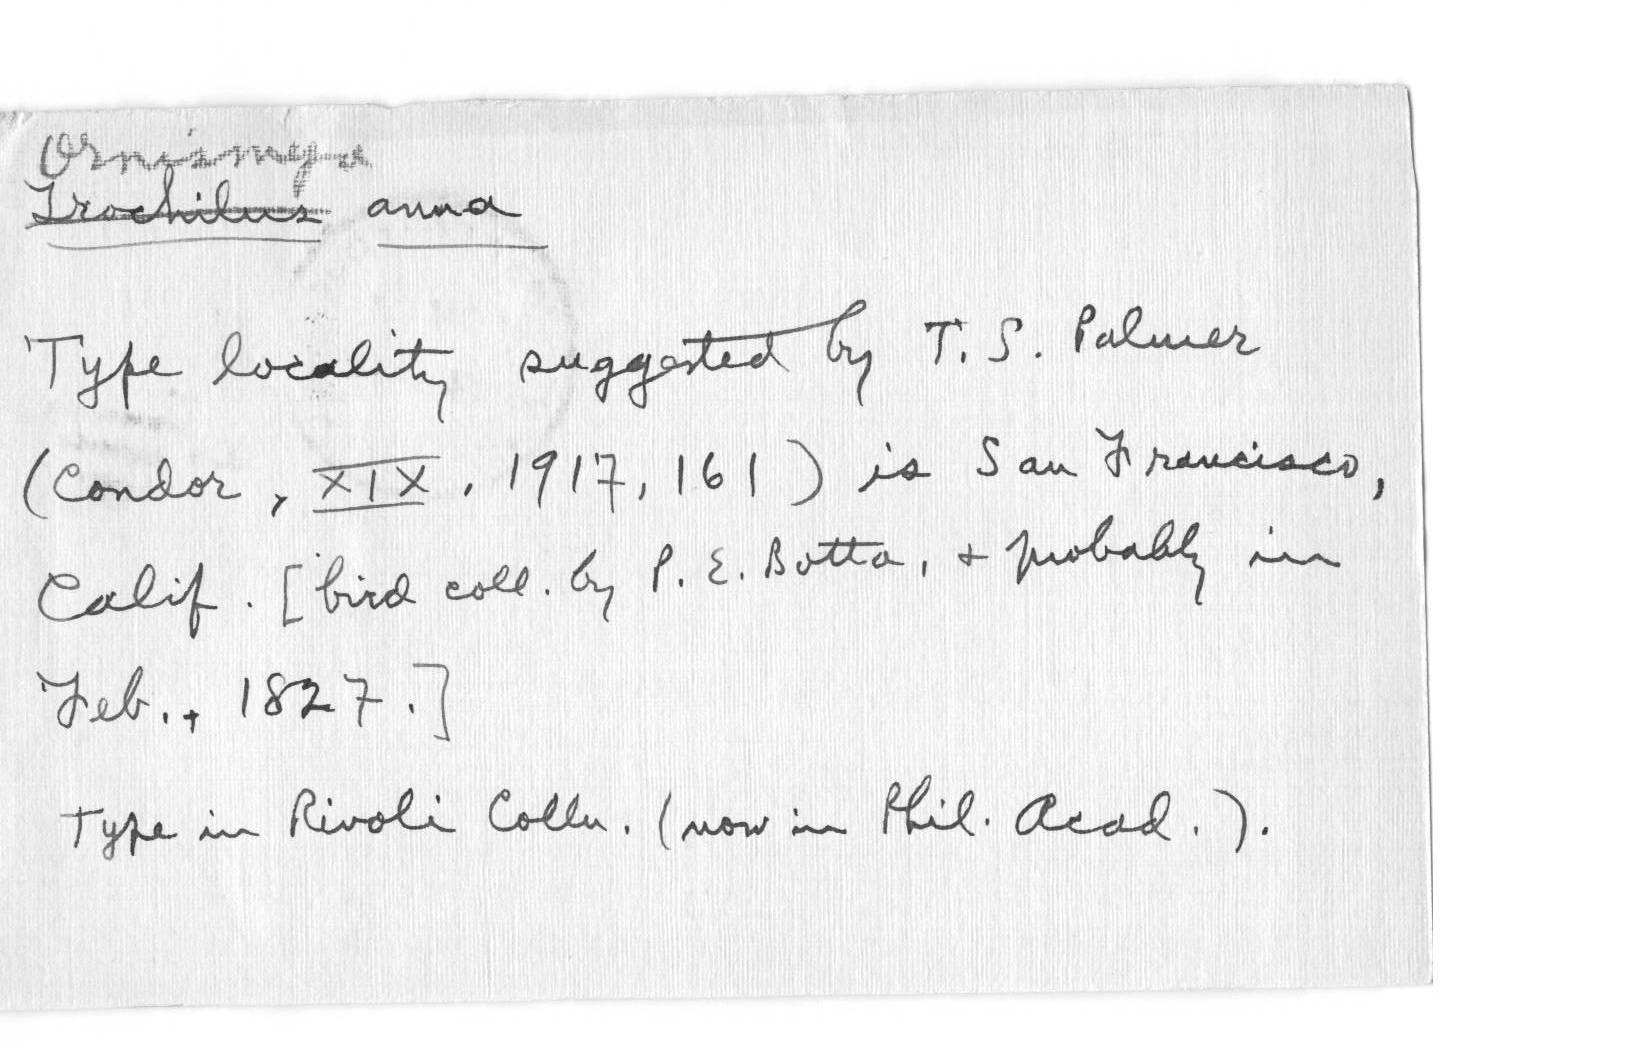 Ornismya
Trochilus anna
Type locality suggested by T. S. Palmer
(Condor, XIX, 1917, 161) is San Francisco,
Calif. [bird coll. by P. E. Botta, + probably in
Feb., 1827.]
Type in Rivoli Colln. (now in Phil. Acad.).